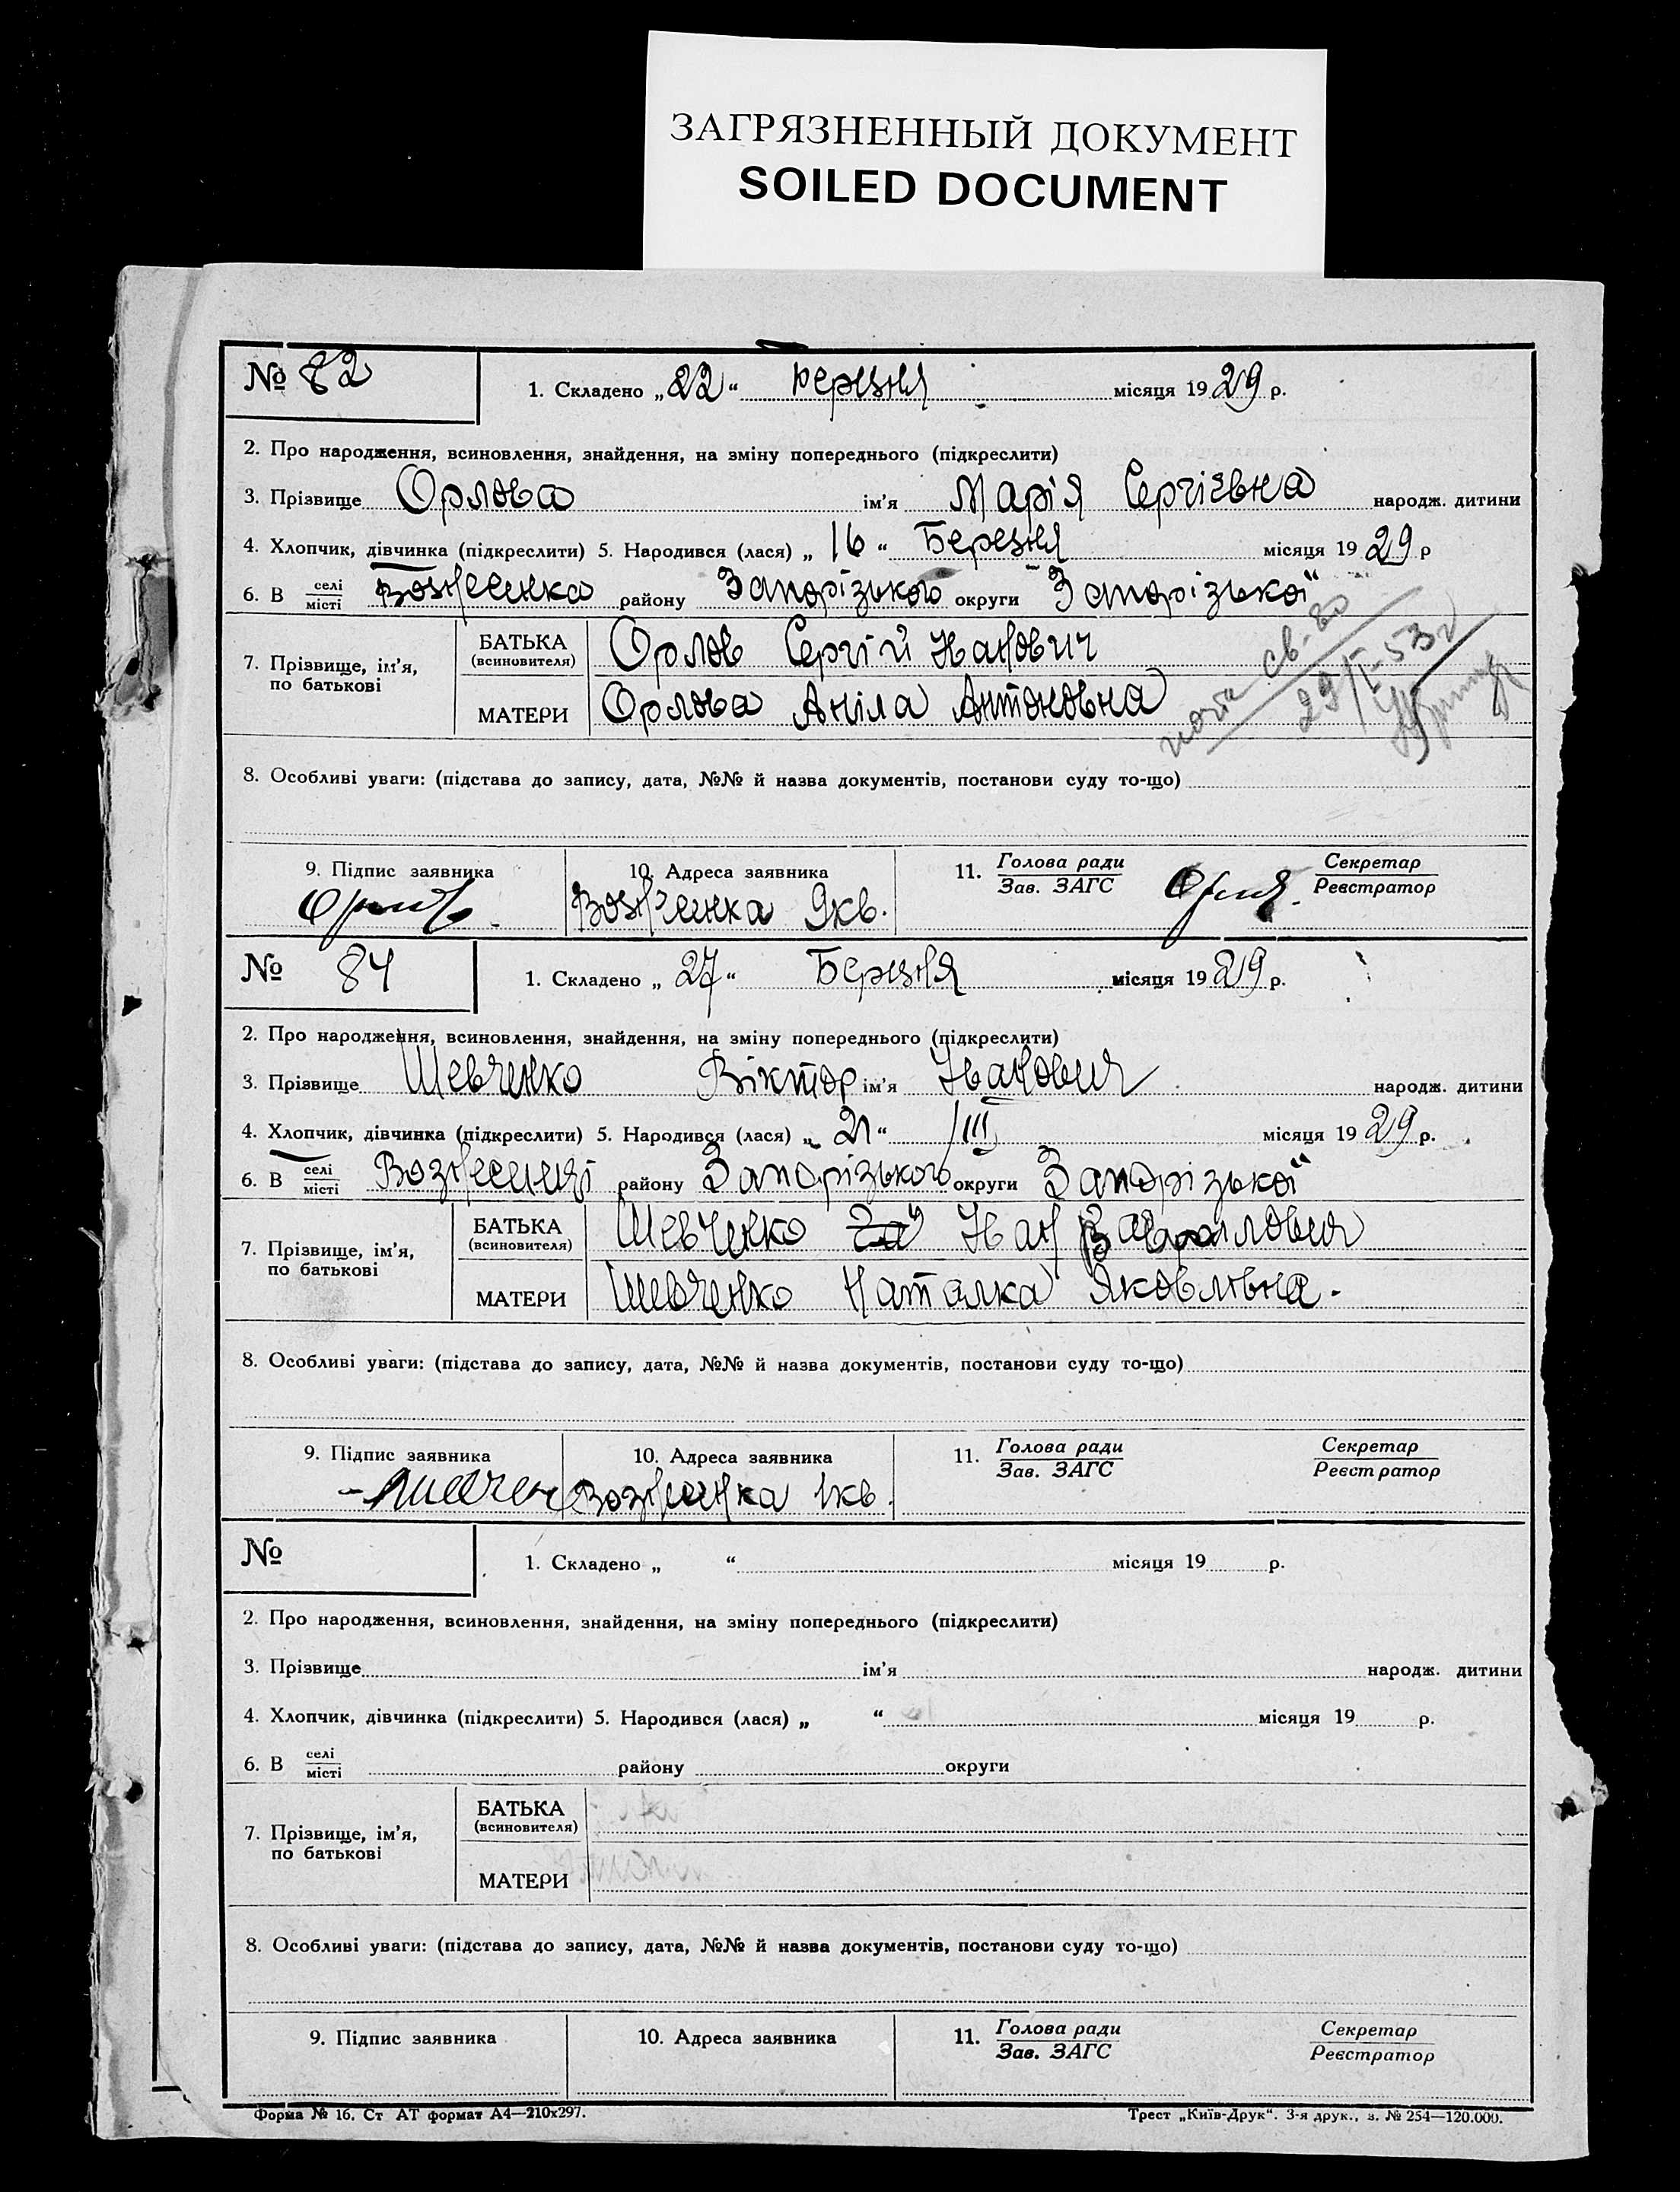 ЗАГРЯЗНЕННЫЙ ДОКУМЕНТ
SOILED DOCUMENT
№ 82
1. Складено „22“ Березня місяця 1929 р.
2. Про народження, всиновлення, знайдення, на зміну попереднього (підкреслити)
3. Прізвище Орлова ім'я Марія Сергієвна народж. дитини
4. Хлопчик, дівчинка (підкреслити) 5. Народився (лася) „16“ Березня місяця 1929 р
6. В селі/місті Вознесенка району Запорізького округи Запорізької
7. Прізвище, ім'я, по батькові
БАТЬКА (всиновителя) Орлов Сергій Іванович
МАТЕРИ Орлова Аніла Антоновна
св-во
29/I-53
8. Особливі уваги: (підстава до запису, дата, №№ й назва документів, постанови суду то-що)
9. Підпис заявника
10. Адреса заявника
11. Голова ради/Зав. ЗАГС
Секретар/Реєстратор
Вознесенка 9кв.
№ 84
1. Складено „27“ Березня місяця 1929 р.
2. Про народження, всиновлення, знайдення, на зміну попереднього (підкреслити)
3. Прізвище Шевченко Віктор ім'я Іванович народж. дитини
4. Хлопчик, дівчинка (підкреслити) 5. Народився (лася) „21“ /III місяця 1929 р.
6. В селі/місті району Запорізького округи Запорізької
7. Прізвище, ім'я, по батькові
БАТЬКА (всиновителя) Шевченко Іван Гаврилович
МАТЕРИ Шевченко Наталка Яковлівна.
8. Особливі уваги: (підстава до запису, дата, №№ й назва документів, постанови суду то-що)
9. Підпис заявника
10. Адреса заявника
11. Голова ради/Зав. ЗАГС
Секретар/Реєстратор
Вознесенка 1кв.
№
1. Складено „ “ місяця 19 р.
2. Про народження, всиновлення, знайдення, на зміну попереднього (підкреслити)
3. Прізвище ім'я народж. дитини
4. Хлопчик, дівчинка (підкреслити) 5. Народився (лася) „ “ місяця 19 р.
6. В селі/місті району округи
7. Прізвище, ім'я, по батькові
БАТЬКА (всиновителя)
МАТЕРИ
8. Особливі уваги: (підстава до запису, дата, №№ й назва документів, постанови суду то-що)
9. Підпис заявника
10. Адреса заявника
11. Голова ради/Зав. ЗАГС
Секретар/Реєстратор
Форма № 16. Ст АТ формат А4—210х297.
Трест „Київ-Друк“. 3-я друк., з. № 254—120.000.